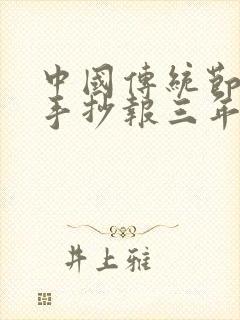 中國傳統節
手抄報三年
井上雅